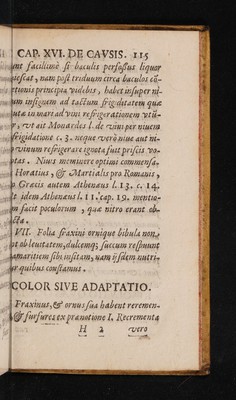 CAP. XVI. DE CAVSIS. 115
unt facillimè si baculis perfossus liquor
descat, nam post triduum circa baculos cō-
cretionis principia videbis, habet insuper ni-
um insignem ad tactum frigiditatem quæ
in mari ad vini refrigerationem vtū-
r, vt ait Monardes l. de vini per niuem
frigidatione c. 3. neque verò niue aut ni-
vinum refrigerare ignota fuit priscis vo-
tas. Niuis meminere optimi commensa-
Horatius, & Martialis pro Romanis,
o Græcis autem Athenæus l. 13. c. 14.
t idem Athenæus l. 11. cap. 19. mentio-
m facit poculorum, quæ nitro erant ob-
cta.
VII. Folia fraxini ornique bibula non
ot ob leuitatem, dulcemq; succum respuunt
amaritiem sibi insitam, nam ijsdem nutri-
ur quibus constamus.
COLOR SIVE ADAPTATIO.
Fraxinus, & ornus sua habent reremen-
, & furfures ex pranotione I. Recrementa
H 2 vero